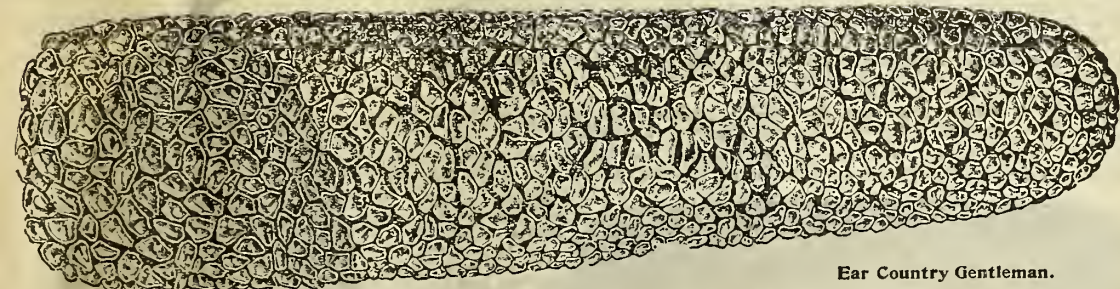 Ear Country Gentleman.